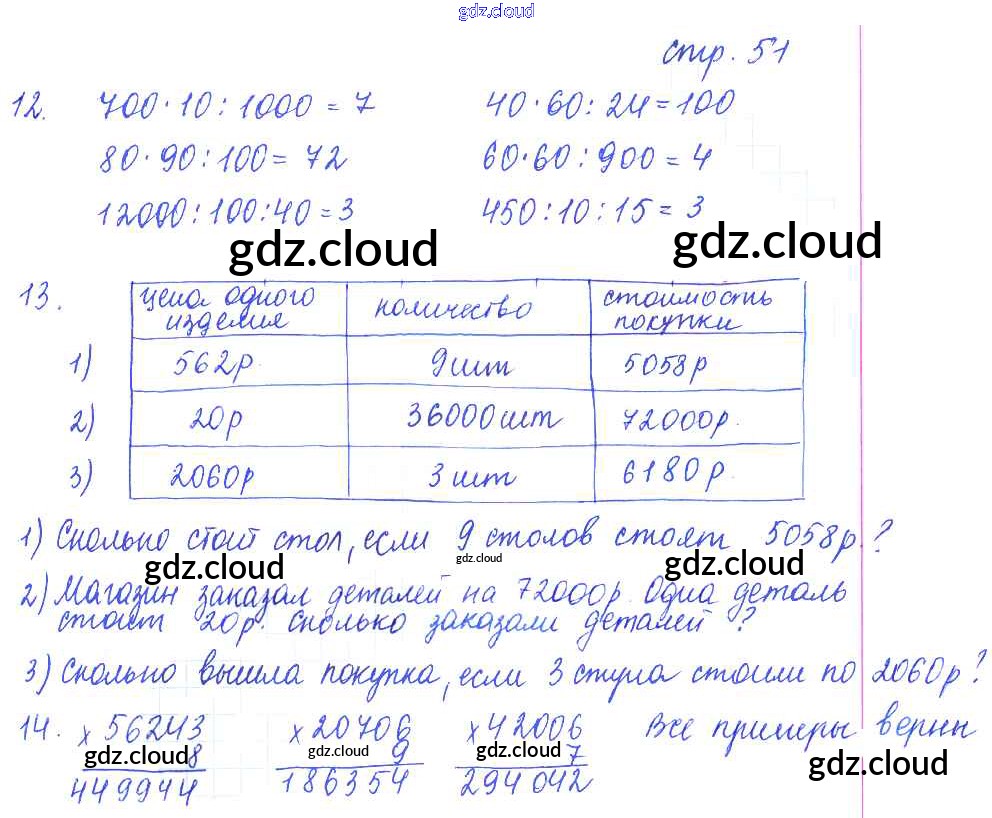 gdz.cloud
стр. 51
12. 700·10:1000=7 40·60:24=100
80·90:100=72 60·60:900=4
12000:100:40=3 450:10:15=3
gdz.cloud gdz.cloud
13. цена одного изделия количество стоимость покупки
1) 562р 9шт 5058р
2) 20р 36000шт 72000р.
3) 2060р 3шт 6180р.
1) Сколько стоит стол, если 9 столов стоят 5058р.?
gdz.cloud gdz.cloud gdz.cloud
2) Магазин заказал деталей на 72000р. Одна деталь
стоит 20р. Сколько заказали деталей?
3) Сколько вышла покупка, если 3 стула стоили по 2060р?
14. х 56243 х 20706 х 42006 Все примеры верны
8 9 7
gdz.cloud gdz.cloud gdz.cloud gdz.cloud
449944 186354 294042